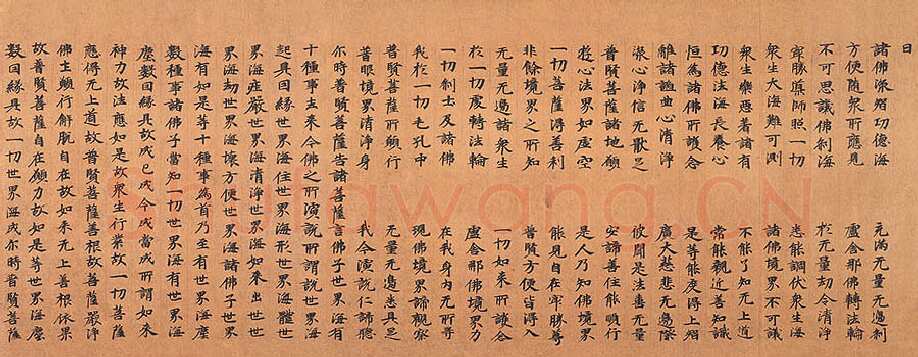 日
諸佛深智功德海 充滿无量无邊刹
方便隨衆所應見 盧舍那佛轉法輪
不可思議佛刹海 於无量劫令清淨
寂勝導師照一切 悉能調伏衆生海
衆生大海難可測 諸佛境界不可議
衆生樂惡著諸有 不能了知无上道
功德法海長養心 常能親近善知識
恒爲諸佛所護念 是等能度得上智
離諸諂曲心清淨 廣大慈悲无邊際
深心淨信无歇足 彼聞是法喜无量
普賢菩薩諸地願 安諦善住能順行
遊心法界如虛空 是人乃知佛境界
一切菩薩得善利 能見自在牢勝尊
非餘境界之所知 普賢方便皆得入
无量无邊諸衆生 一切如來所護念
於一切處轉法輪 盧舍那佛境界力
一切刹土及諸佛 在我身內无所
我於一切毛孔中 現佛境界諦觀察
普賢菩薩所願行 无量无邊悉具足
普眼境界清淨身 我今演說仁諦聽
尒時普賢菩薩告諸菩薩言佛子世界海有
十種事去來今佛之所演說所謂說世界海
起具因緣世界海住世界海形世界海體世
界海莊嚴世界海清淨世界海如來出世世
界海劫世界海壞方便世界海諸佛子世界
海有如是等十種事爲首乃至有世界海塵
數種事諸佛子當知一切世界海有世界海
塵數因緣具故成已成今成當成所謂如來
神力故法應如是故衆生行業故一切菩薩
應得无上道故普賢菩薩善根故菩薩嚴淨
佛土願行解脫自在故如來无上善根依果
故普賢菩薩自在願力故如是等世界海塵
數因緣具故一切世界海成尒時普賢菩薩
Shufawang.CN